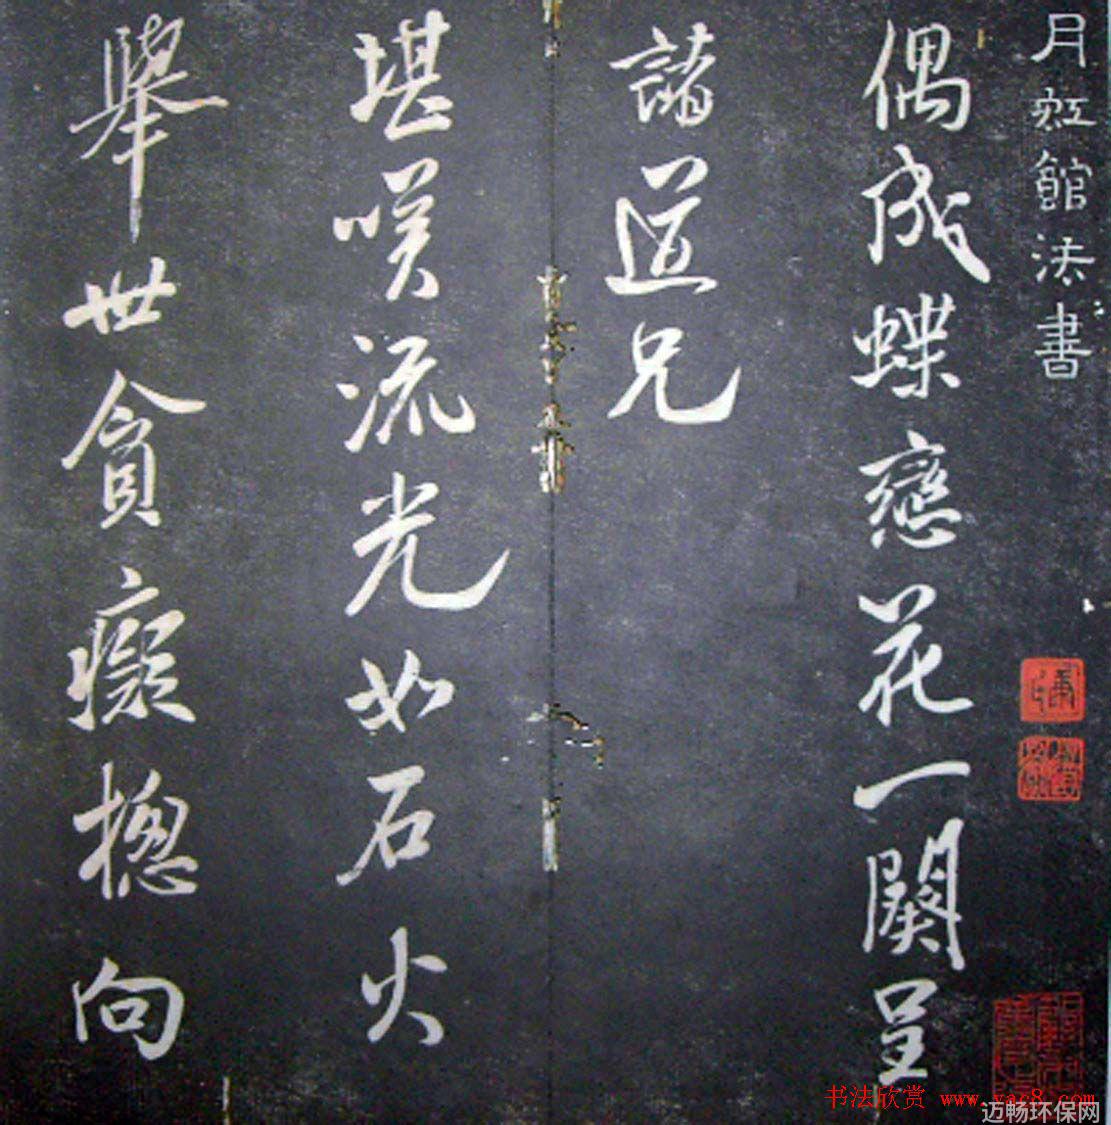 月虹館法書
偶成蝶戀花一闋呈
諸道兄
堪咲流光如石火
舉世貪癡摠向
书法欣赏 www.yac8.com
迈畅环保网